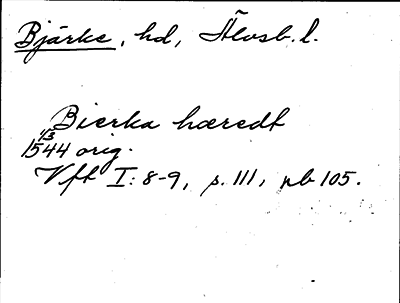 Bjärke, hd, Älvsb. l.
Bierka häredt
1/3
1544 orig.
Vft I: 8-9, s. 111, nb 105.